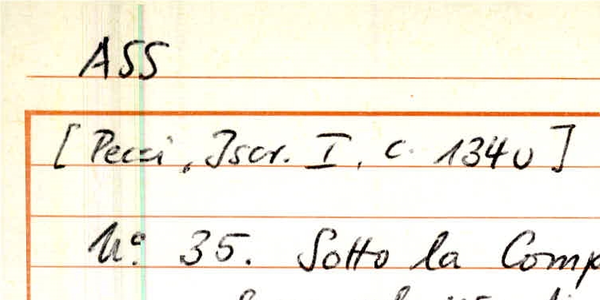 ASS
[Pecci, Iscr. I, c. 134v]
N.º 35. Sotto la Comp